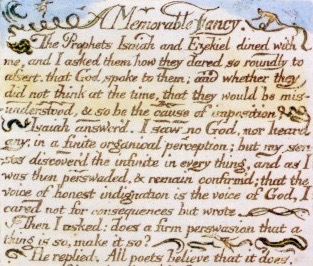 A Memorable Fancy
The Prophets Isaiah and Ezekiel dined with
me, and I asked them how they dared so roundly to
assert. that God spoke to them; and whether they
did not think at the time, that they would be mis-
understood, & so be the cause of imposition
Isaiah answerd. I saw no God, nor heard
any, in a finite organical perception; but my sen-
ses discoverd the infinite in every thing, and as I
was then perswaded, & remain confirmd; that the
voice of honest indignation is the voice of God, I
cared not for consequences but wrote
Then I asked: does a firm perswasion that a
thing is so, make it so?
He replied, All poets believe that it does,